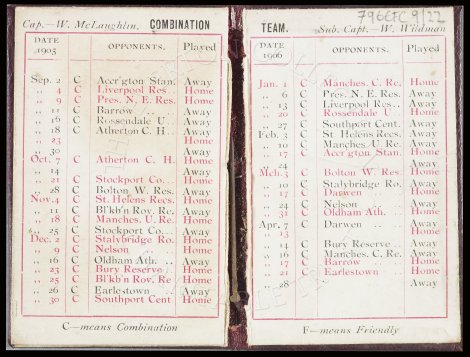 Cap.—W. McLaughlin. COMBINATION
DATE 1905 OPPONENTS. Played
Sep. 2 C Accr'gton Stan. Away
,, 4 C Liverpool Res... Home
,, 9 C Pres. N. E. Res. Home
,, 11 C Barrow .. .. Away
,, 16 C Rossendale U... Away
,, 18 C Atherton C. H. Away
,, 23 Home
,, 30 Away
Oct. 7 C Atherton C. H. Home
,, 14 Away
,, 21 C Stockport Co... Home
,, 28 C Bolton W. Res. Away
Nov. 4 C St. Helens Recs. Home
,, 11 C Bl'kb'n Rov. Re. Away
,, 18 C Manches. U. Re. Home
,, 25 C Stockport Co... Away
Dec. 2 C Stalybridge Ro. Home
,, 9 C Nelson .. Home
,, 16 C Oldham Ath. .. Away
,, 23 C Bury Reserve .. Home
,, 25 C Bl'kb'n Rov. Re Home
,, 26 C Earlestown .. Away
,, 30 C Southport Cent Home
C—means Combination
796EFC 9/22
TEAM. Sub. Capt.—W. Wildman
DATE 1906 OPPONENTS. Played
Jan. 1 C Manches. C. Re. Home
,, 6 C Pres. N. E. Res. Away
,, 13 C Liverpool Res.. Away
,, 20 C Rossendale U Home
,, 27 C Southport Cent. Away
Feb. 3 C St. Helens Recs. Away
,, 10 C Manches. U. Re. Away
,, 17 C Accr'gton. Stan. Home
,, 24 Away
Mch. 3 C Bolton W. Res. Home
,, 10 C Stalybridge Ro. Away
,, 17 C Darwen .. Home
,, 24 C Nelson .. Away
,, 31 C Oldham Ath. Home
Apr. 7 C Darwen .. .. Away
,, 13 Home
,, 14 C Bury Reserve .. Away
,, 16 C Manches. C. Re. Away
,, 17 C Barrow .. Home
,, 21 C Earlestown Home
,, 28 Away
F—means Friendly